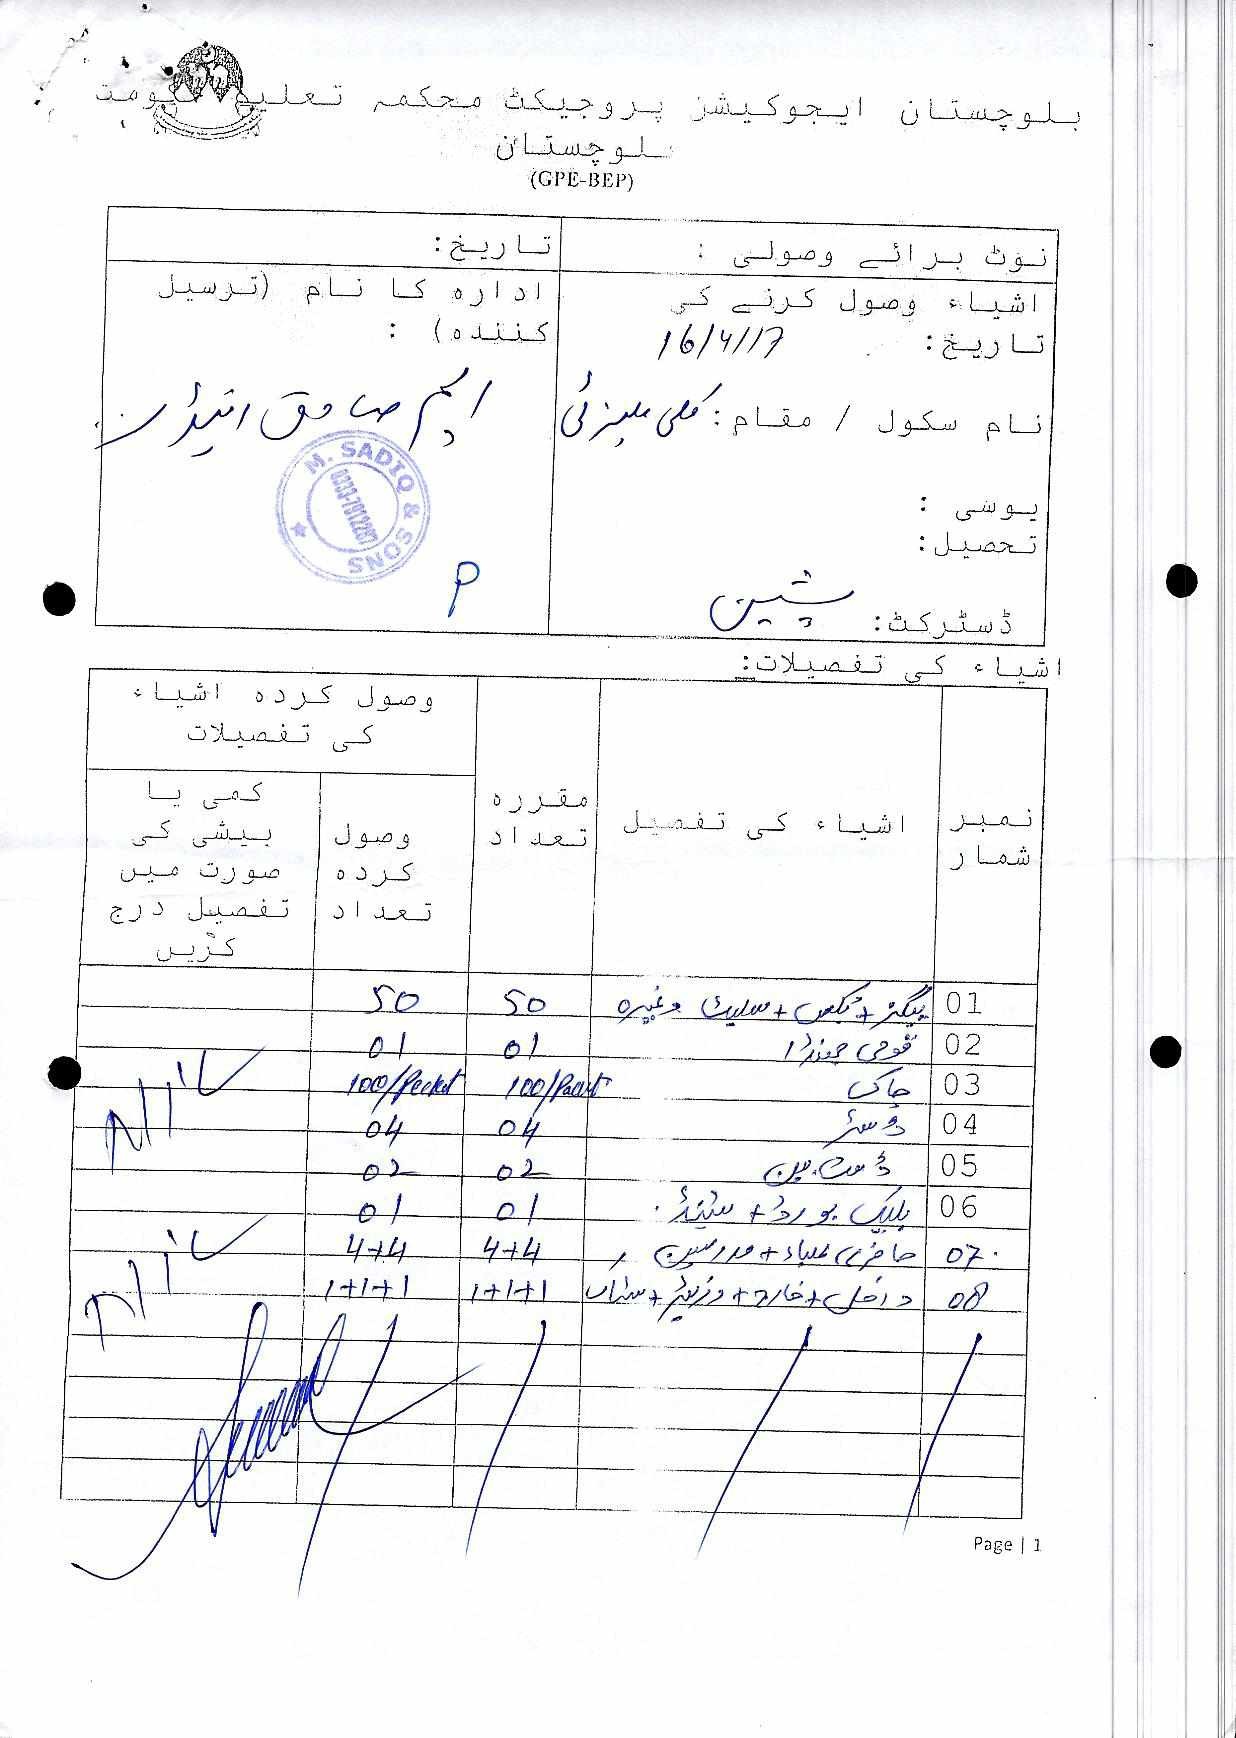 بلوچستان ایجوکیشنز پروجیکٹ محکمہ تعلیم حکومت
بلوچستان
(GPE-BEP)
نوٹ برائے وصولی :
تاریخ:
اشیاء وصول کرنے کی
تاریخ: 16/4/17
نام سکول / مقام: کلی
یوسی :
تحصیل:
ڈسٹرکٹ: پشین
ادارہ کا نام (ترسیل
کنندہ) :
ایم صادق اینڈ سنز
M. SADIQ & SONS
0333-7912287
P
اشیاء کی تفصیلات:
نمبر شمار
اشیاء کی تفصیل
مقررہ تعداد
وصول کردہ اشیاء کی تفصیلات
وصول کردہ تعداد
کمی یا بیشی کی صورت میں تفصیل درج کریں
01 بیگز + بکس + سلیٹ وغیرہ 50 50
02 قومی جھنڈا 01 01
03 چاک 100/Packet 100/Packet
04 ڈسٹر 04 04
05 ڈسٹ بین 02 02
06 بلیک بورڈ + سٹینڈ 01 01
07 حاضری طلباء + مدرسین 4+4 4+4
08 داخل + خارج + وزیٹر + سٹاک 1+1+1 1+1+1
Page | 1